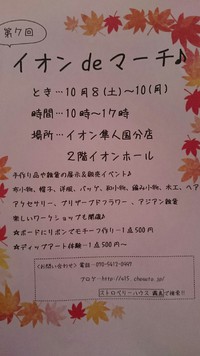 第7回
イオン de マーチ♪
とき…10月8(土)~10(月)
時間…10時~17時
場所…イオン隼人国分店
2階イオンホール
手作り品や雑貨の展示&販売イベント♪
布小物、帽子、洋服、バッグ、和小物、編み小物、木工、ヘア
アクセサリー、プリザーブドフラワー、アジアン雑貨
楽しいワークショップも開催♪
☆ボードにリボンプモチーフ作り…1点500円
☆ディップアート体験…1点500円~
<お問い合わせ>電話…
ブログ…http://
ストロベリーハウス
で検索!!